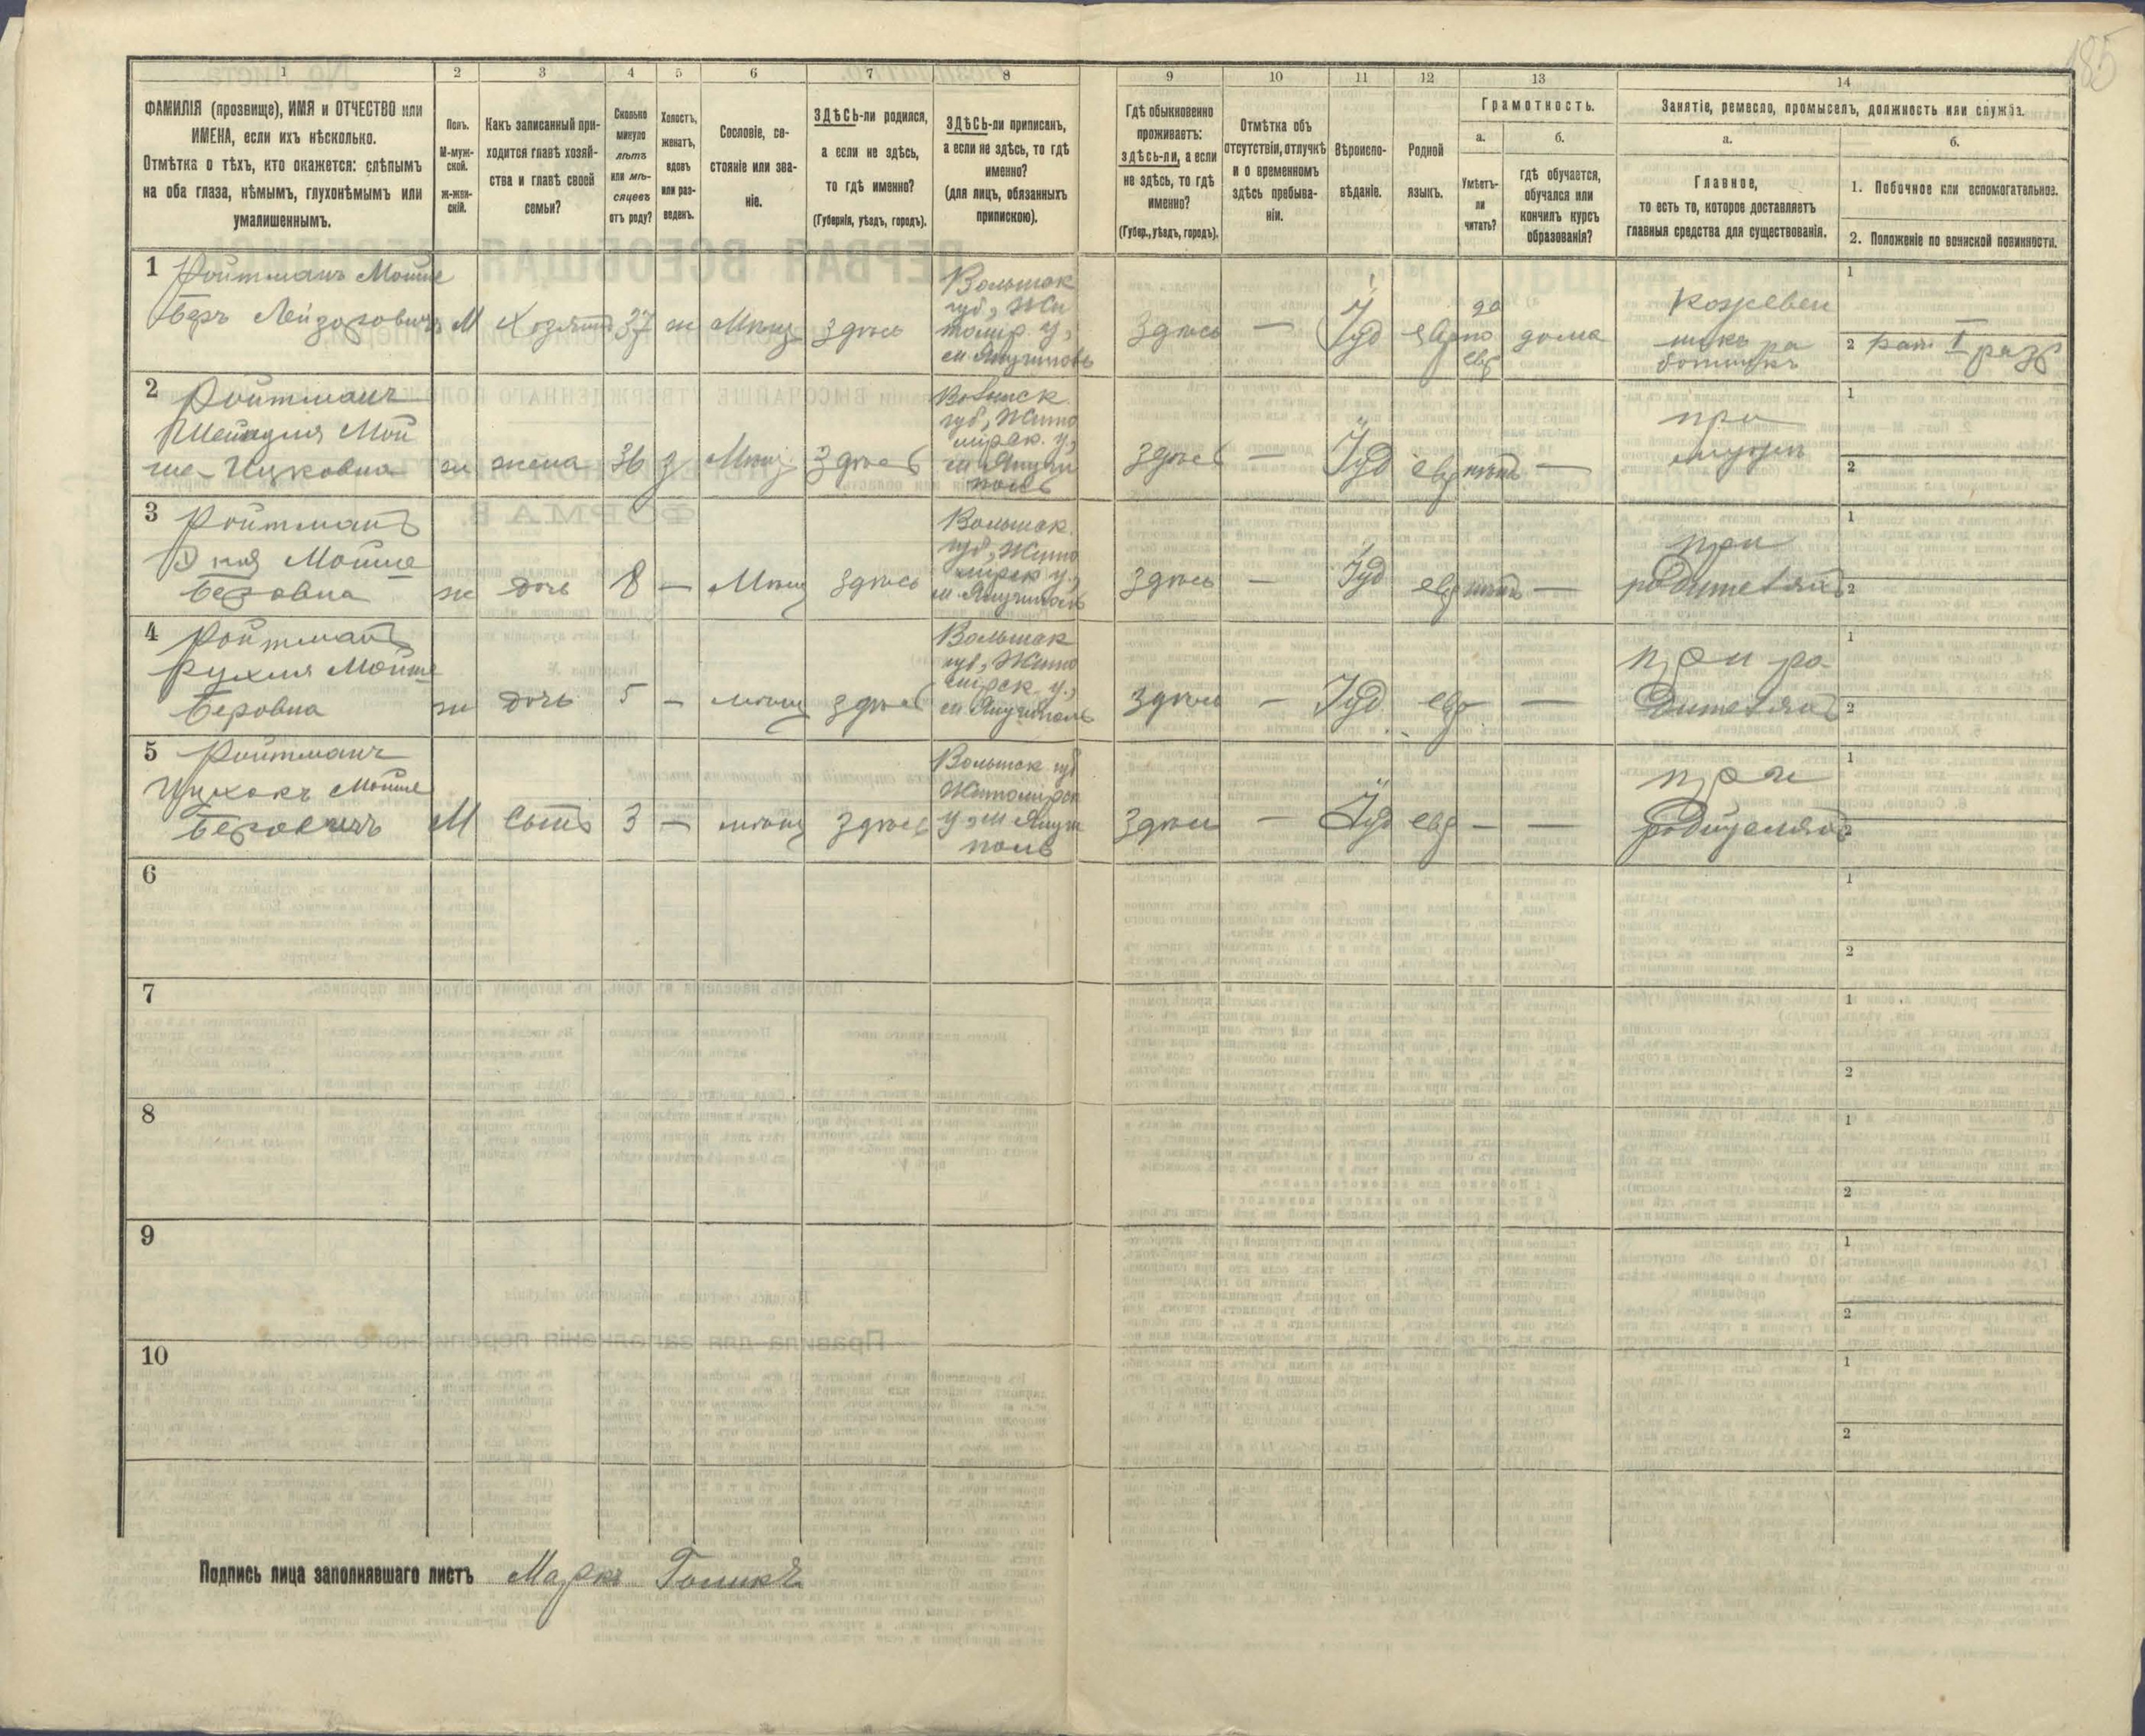 185
1
2
3
4
5
6
7
8
9
10
11
12
13
14
ФАМИЛІЯ (прозвище), ИМЯ и ОТЧЕСТВО или
ИМЕНА, если ихъ нѣсколько.
Отмѣтка о тѣхъ, кто окажется: слѣпымъ
на оба глаза, нѣмымъ, глухонѣмымъ или
умалишеннымъ.
Полъ.
М-муж-
ской.
ж-жен-
скій.
Какъ записанный при-
ходится главѣ хозяй-
ства и главѣ своей
семьи?
Сколько
минуло
лѣтъ
или мѣ-
сяцевъ
отъ роду?
Холостъ,
женатъ,
вдовъ
или раз-
веденъ.
Сословіе, со-
стояніе или зва-
ніе.
ЗДѢСЬ-ли родился,
а если не здѣсь,
то гдѣ именно?
(Губернія, уѣздъ, городъ).
ЗДѢСЬ-ли приписанъ,
а если не здѣсь, то гдѣ
именно?
(для лицъ, обязанныхъ
припискою).
Гдѣ обыкновенно
проживаетъ:
здѣсь-ли, а если
не здѣсь, то гдѣ
именно?
(Губер., уѣздъ, городъ).
Отмѣтка объ
отсутствіи, отлучкѣ
и о временномъ
здѣсь пребыва-
ніи.
Вѣроиспо-
вѣданіе.
Родной
языкъ.
Грамотность.
а.
Умѣетъ-
ли
читать?
б.
гдѣ обучается,
обучался или
кончилъ курсъ
образованія?
Занятіе, ремесло, промыселъ, должность или служба.
а.
Главное,
то есть то, которое доставляетъ
главныя средства для существованія.
б.
1. Побочное или вспомогательное.
2. Положеніе по воинской повинности.
1 Ройтманъ Мойше
Беръ Лейзоровичъ
М
Хозяинъ
37
ж
Мѣщ
здѣсь
Волынск
губ, Жи
томир. у,
м. Янушполь
Здѣсь
—
Іуд
евр
да
по
евр
дома
Кожевен
никъ ра
ботникъ
1
2 рат I разр
2 Ройтманъ
Шейндля Мой
ше-Ицковна
ж
жена
36
з
Мѣщ
Здѣсь
Волынск
губ, Жито
мирск. у,
м. Янушполь
Здѣсь
—
Іуд
евр
нѣтъ
—
при
мужѣ
1
2
3 Ройтманъ
Мойше
Беровна
ж
дочь
8
—
Мѣщ
здѣсь
Волынск.
губ, Жито
мирск у.,
м. Янушполь
Здѣсь
—
Іуд
евр
нѣтъ
—
при
родителяхъ
1
2
4 Ройтманъ
Рухля Мойше
Беровна
ж
дочь
5
—
мѣщ
здѣсь
Волынск
губ, Жито
мирск у.,
м Янушполь
Здѣсь
—
Іуд
евр
—
—
при ро-
дителяхъ
1
2
5 Ройтманъ
Мойше
Беровичъ
М
Сынъ
3
—
мѣщ
Здѣсь
Волынск губ
Житомирск
у, м Януш
поль
Здѣсь
—
Іуд
евр
—
—
при
родителяхъ
1
2
6
1
2
7
1
2
8
1
2
9
1
2
10
1
2
Подпись лица заполнявшаго листъ Маркъ Голикъ